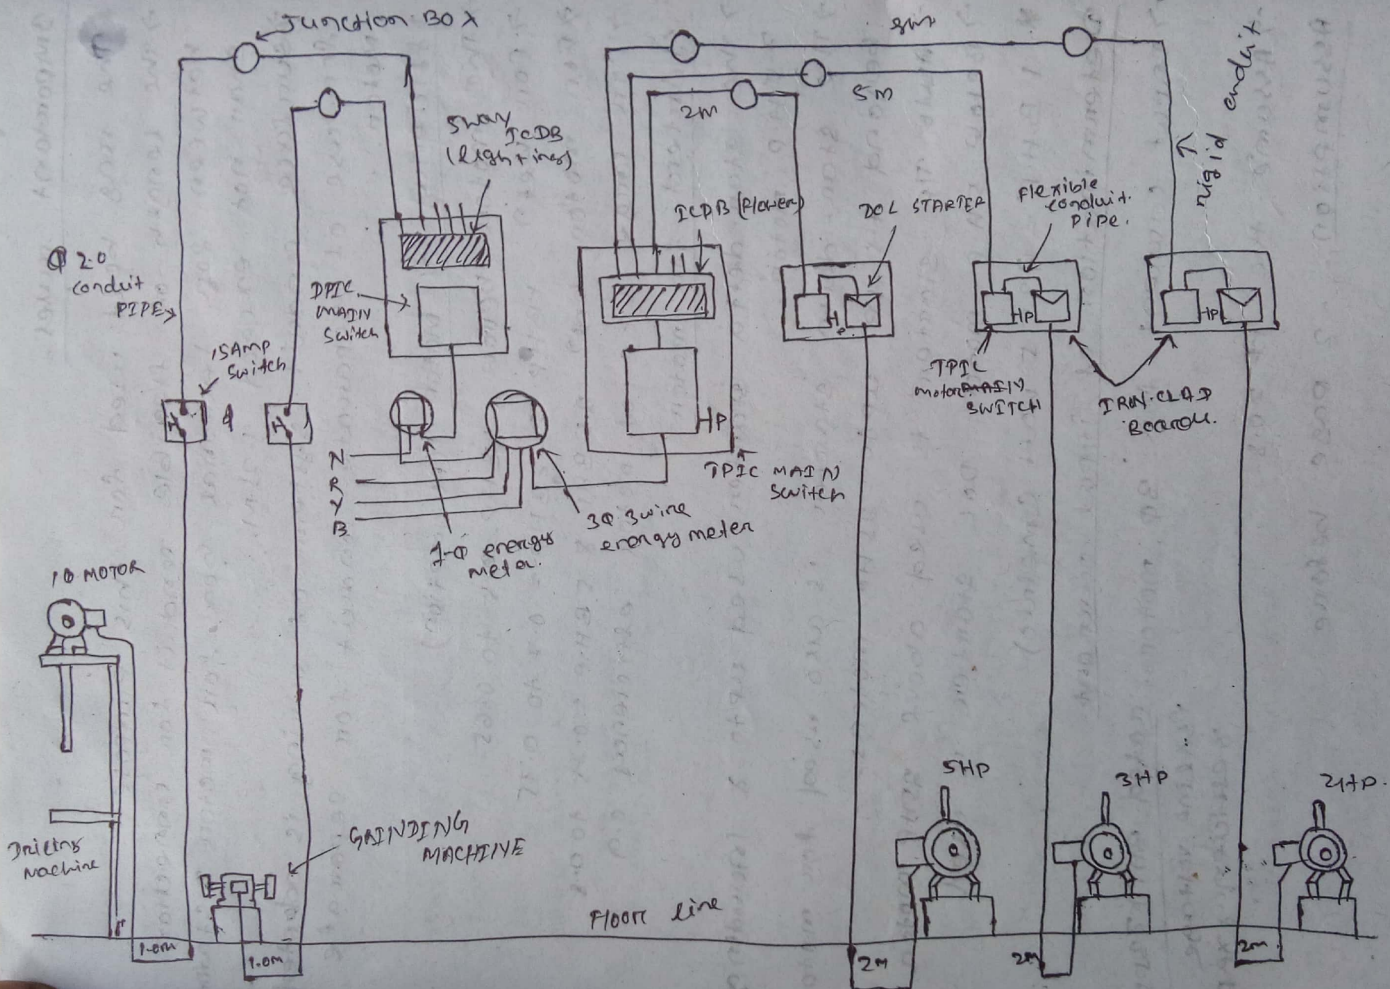 JUNCTION BOX
8m
5m
2M
5way
ICDB
(Lightings)
ICDB (Power)
DOL STARTER
Flexible
conduit
PIPE.
rigid conduit
Φ 20
conduit
PIPE
DPIC
MAIN
Switch
15AMP
Switch
HP
HP
HP
HP
TPIC
motor MAIN
SWITCH
IRON-CLAD
Boards.
TPIC MAIN
Switch
N
R
Y
B
1-Φ energy
meter.
3Φ 3wire
energy meter
1Φ MOTOR
5HP
3HP
2HP.
GRINDING
MACHINE
Machine
Floor line
1.0M
1.0M
2M
2M
2M